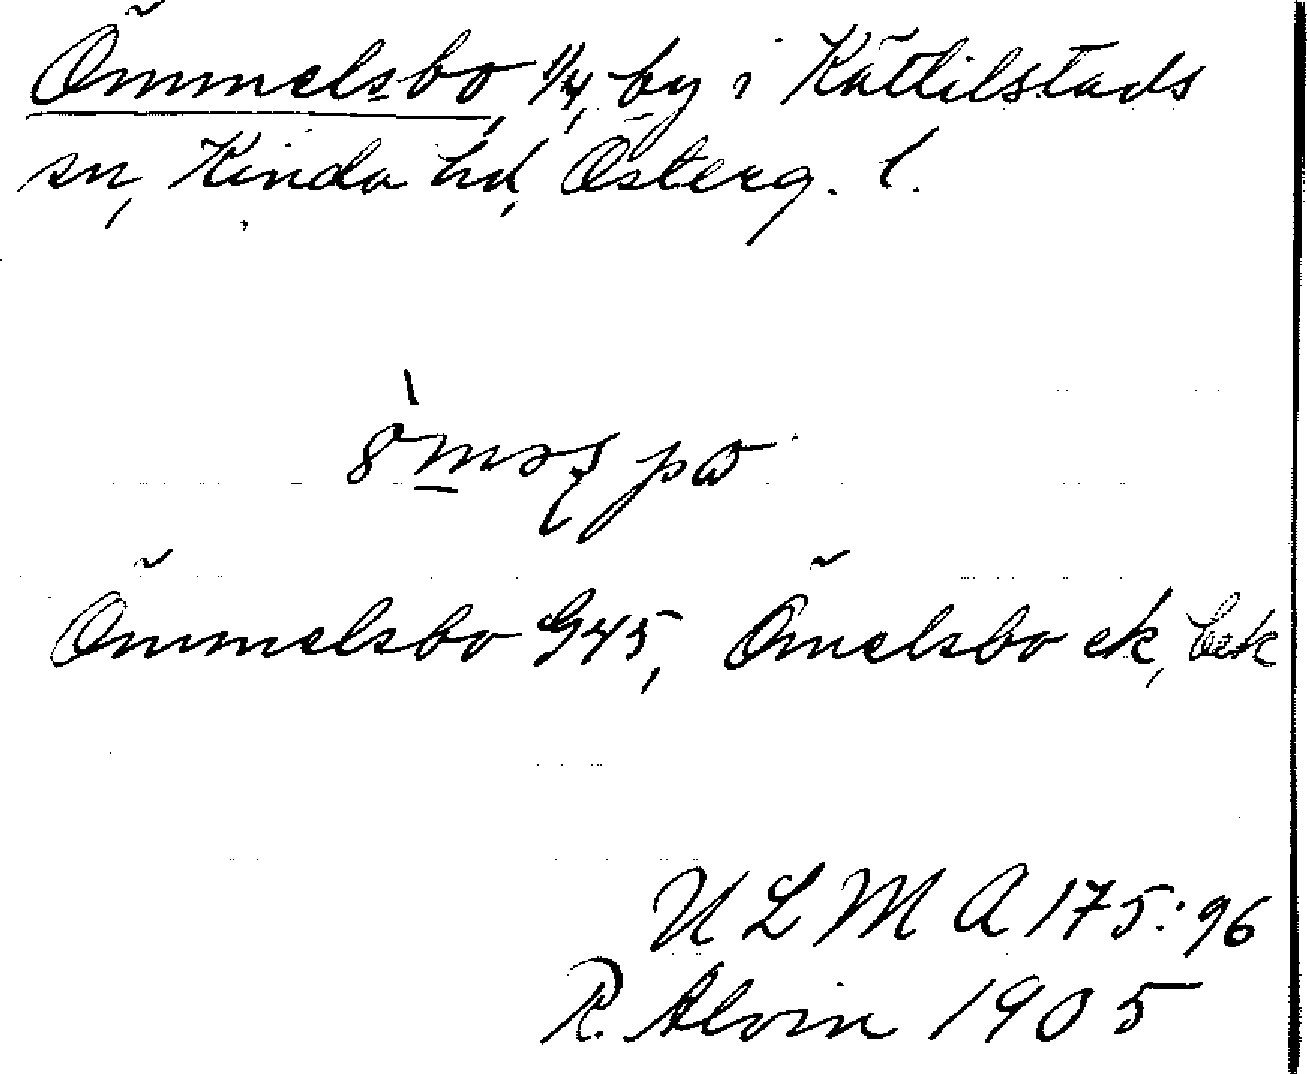 Ömmelsbo, 1/4, by i Kättilstads
sn, Kinda hd, Österg. l.
Ömmelsbo G45, Ömelsbo ek, bek
ULMA 175:96
R. Alvin 1905